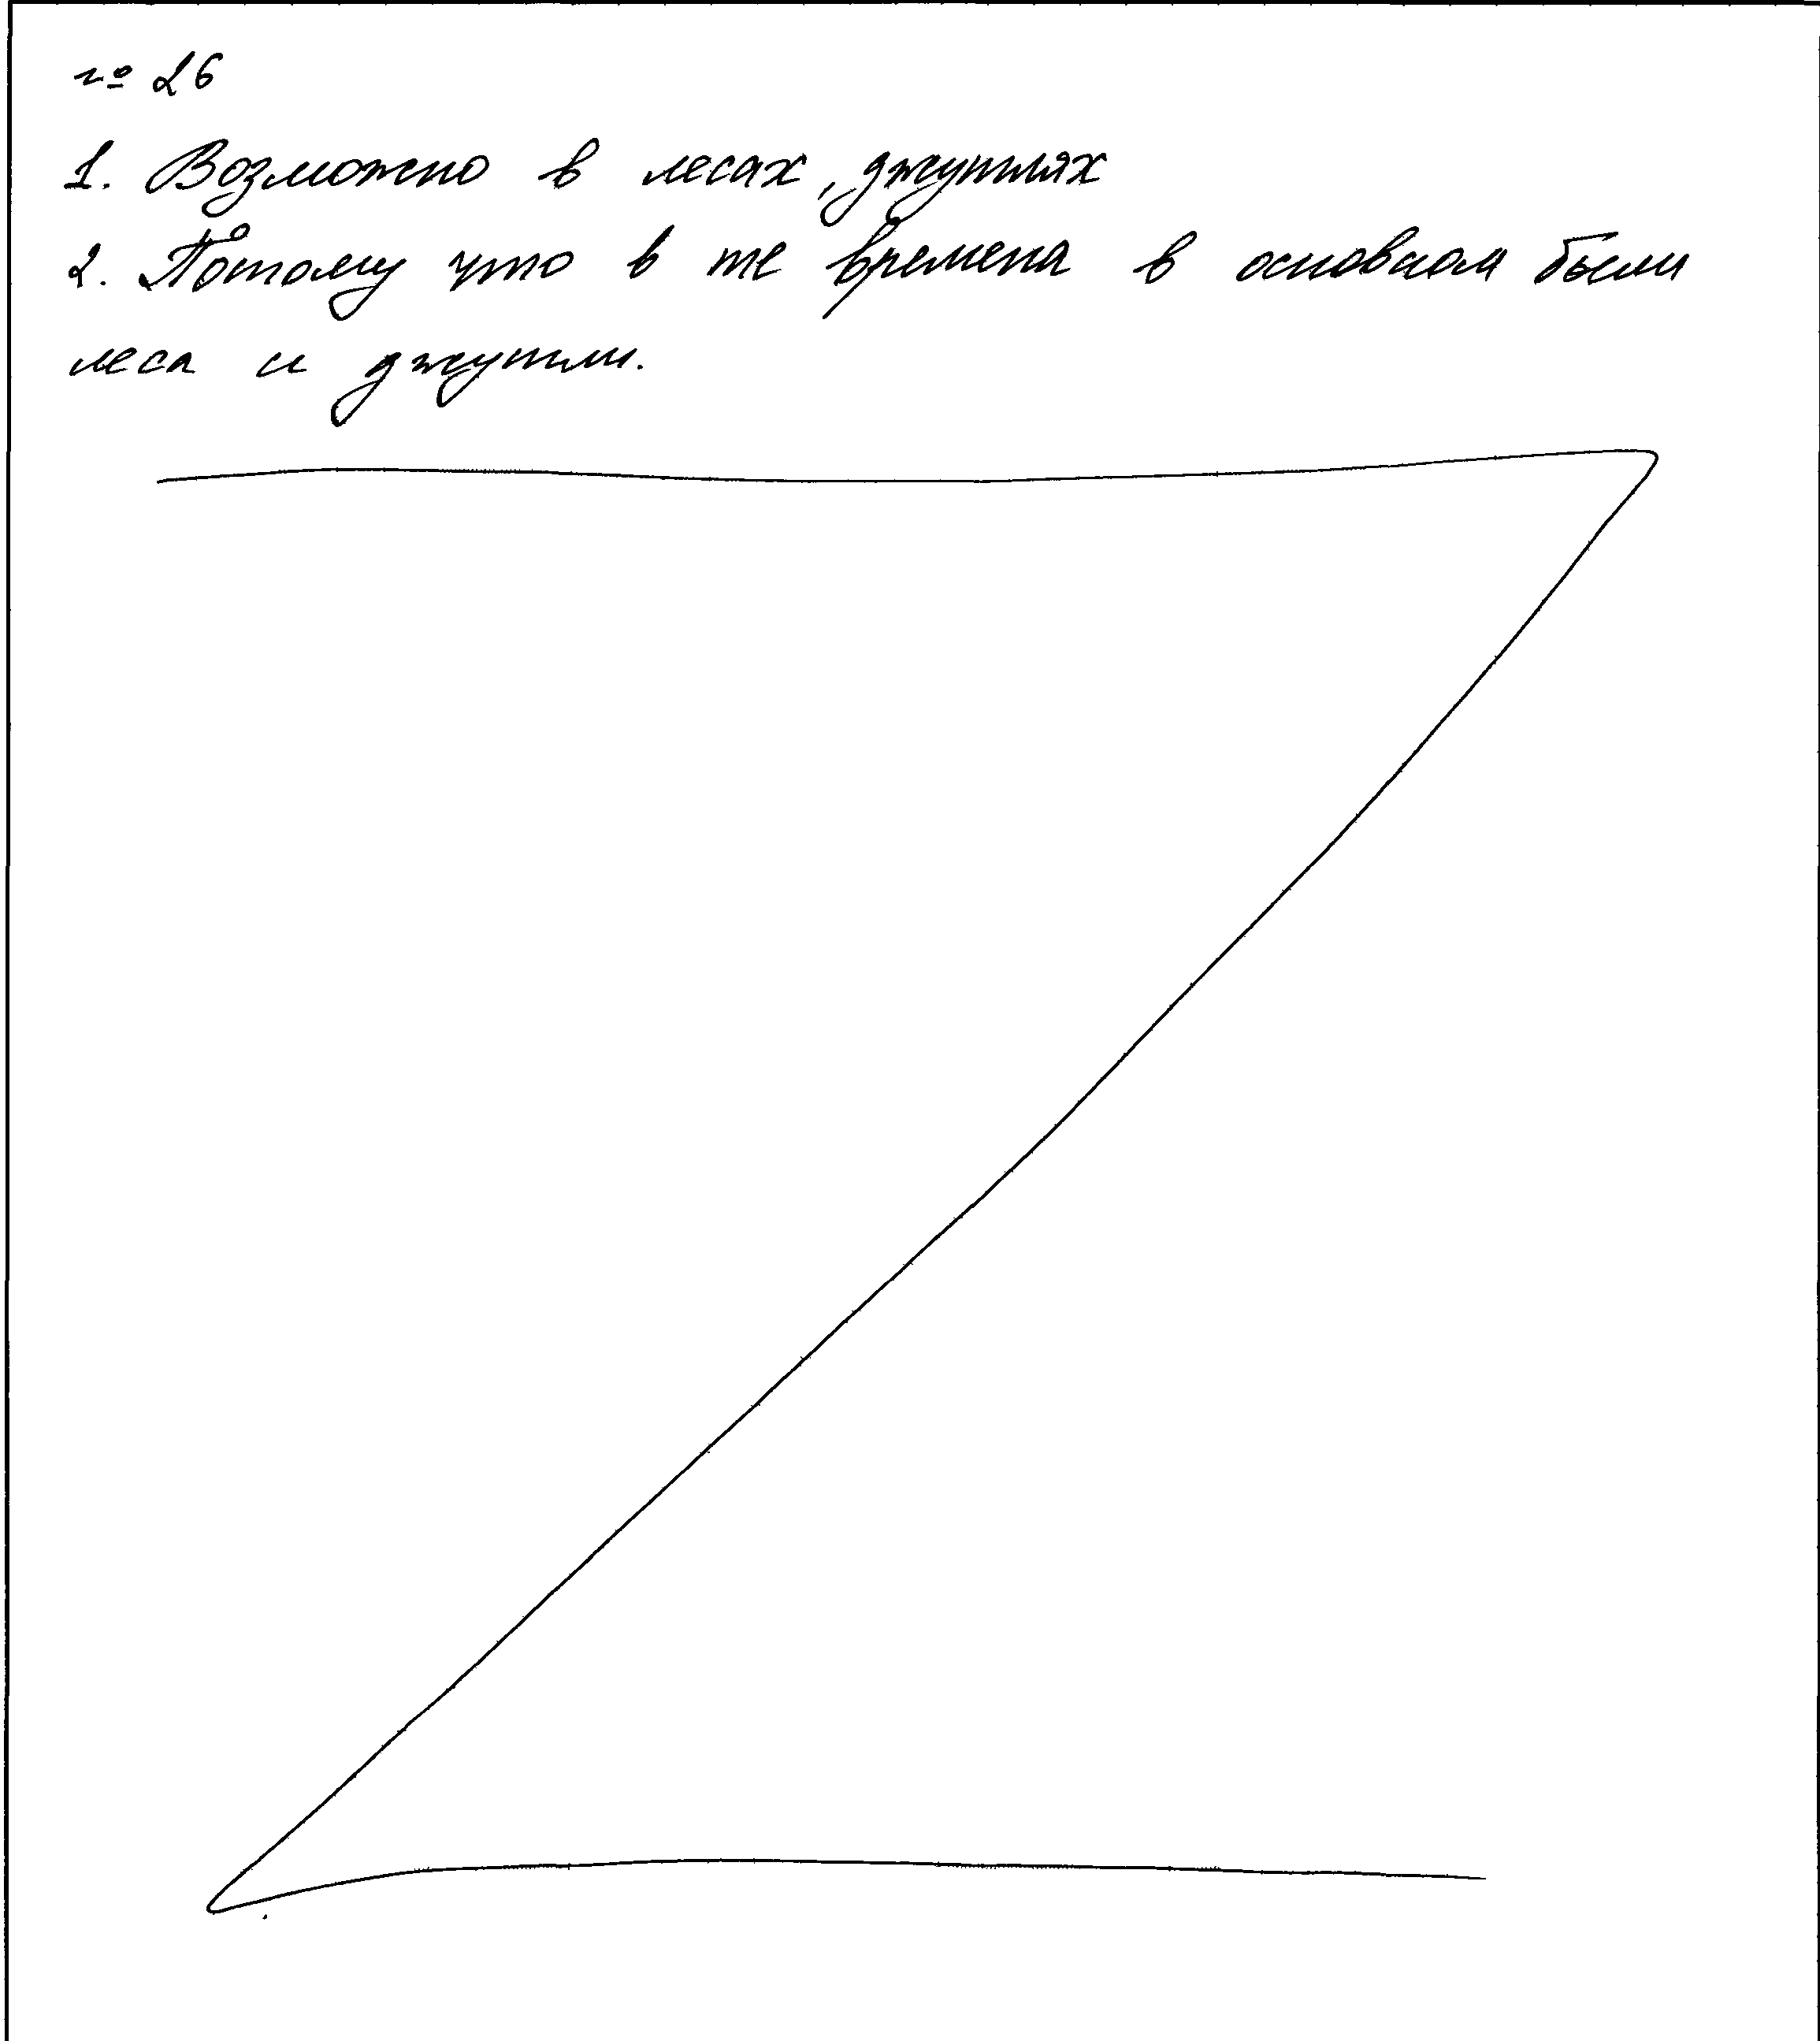 № 26
1. Возможно в лесах, джунглях
2. Потому что в те времена в основном были
леса и джунгли.